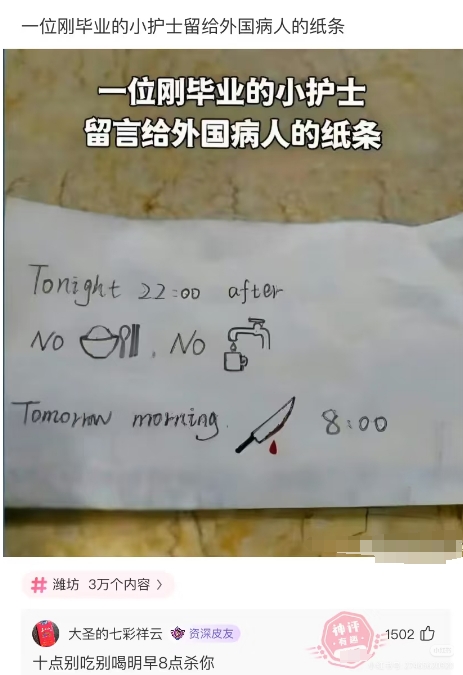 一位刚毕业的小护士留给外国病人的纸条
一位刚毕业的小护士
留言给外国病人的纸条
Tonight 22:00 after
No , No
Tomorrow morning. 8:00
# 潍坊 3万个内容 >
大圣的七彩祥云 资深皮友
神评
有趣
1502
十点别吃别喝明早8点杀你